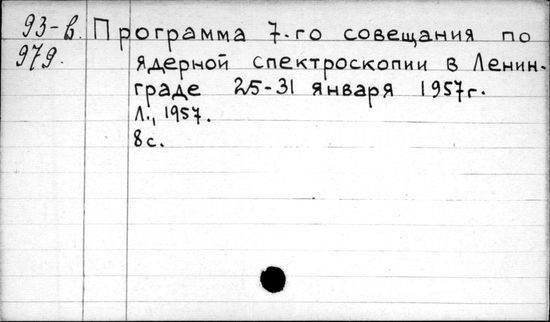 93-в. Программа 7-го совещания по
979. ядерной спектроскопии в Ленин-
граде 25-31 января 1957г.
Л., 1957.
8с.